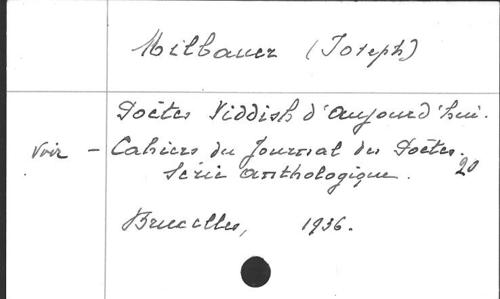 Milbauer (Joseph)
Poètes Yiddish d'aujourd'hui.
Voir - Cahiers du Journal des Poètes.
Série anthologique. 20
Bruxelles, 1936.